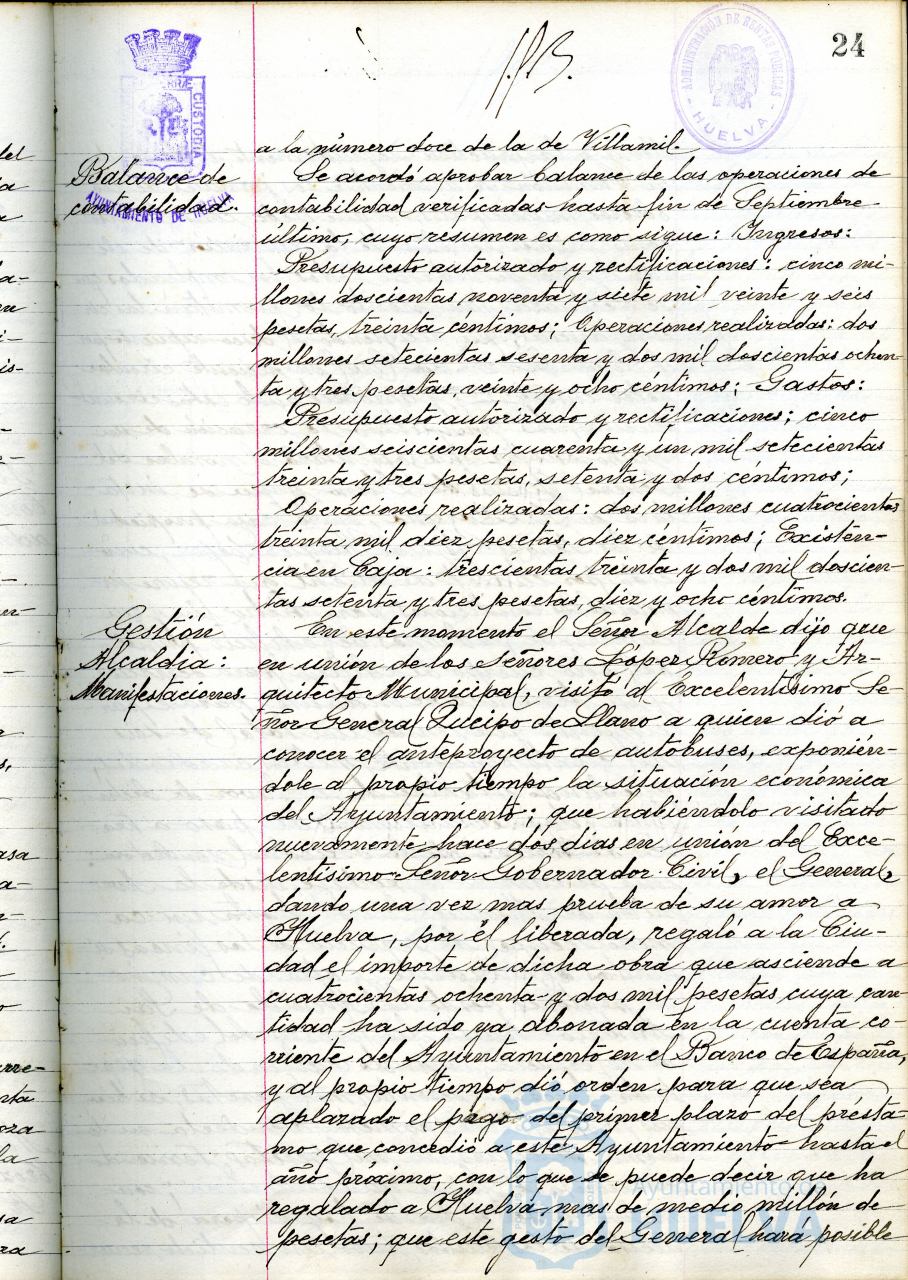 24
ADMINISTRACIÓN DE RENTAS PUBLICAS
HUELVA
CUSTODIA
AYUNTAMIENTO DE HUELVA
a la número doce de la de Villamil.
Balance de
contabilidad.
Se acordó aprobar balance de las operaciones de
contabilidad verificadas hasta fin de Septiembre
último, cuyo resumen es como sigue: Ingresos:
Presupuesto autorizado y rectificaciones: cinco mi-
llones doscientas noventa y siete mil veinte y seis
pesetas, treinta céntimos; Operaciones realizadas: dos
millones setecientas sesenta y dos mil doscientas ochen-
ta y tres pesetas, veinte y ocho céntimos; Gastos:
Presupuesto autorizado y rectificaciones; cinco
millones seiscientas cuarenta y un mil setecientas
treinta y tres pesetas, setenta y dos céntimos;
Operaciones realizadas: dos millones cuatrocientas
treinta mil diez pesetas, diez céntimos; Existen-
cia en Caja: trescientas treinta y dos mil doscien-
tas setenta y tres pesetas, diez y ocho céntimos.
Gestión
Alcaldia:
Manifestaciones.
En este momento el Señor Alcalde dijo que
en unión de los señores López Romero y Ar-
quitecto Municipal, visitó al Excelentísimo Se-
ñor General Queipo de Llano a quien dió a
conocer el anteproyecto de autobuses, exponién-
dole al propio tiempo la situación económica
del Ayuntamiento; que habiéndolo visitado
nuevamente hace dos dias en unión del Exce-
lentísimo Señor Gobernador Civil, el General,
dando una vez mas prueba de su amor a
Huelva, por él liberada, regaló a la Ciu-
dad el importe de dicha obra que asciende a
cuatrocientas ochenta y dos mil pesetas cuya can
tidad ha sido ya abonada en la cuenta co-
rriente del Ayuntamiento en el Banco de España,
y al propio tiempo dió orden para que sea
aplazado el pago del primer plazo del présta-
mo que concedió a este Ayuntamiento hasta el
año próximo, con lo que se puede decir que ha
regalado a Huelva mas de medio millón de
pesetas; que este gesto del General hará posible
Ayuntamiento de
HUELVA